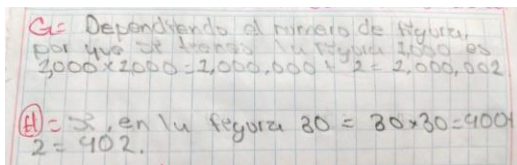 G= Dependiendo el numero de figura,
por que se la figura 1,000 es
1,000 x 1,000 = 1,000,000 + 2 = 1,000,002
H = , en la figura 30 = 30 x 30 = 400 +
2 = 402.